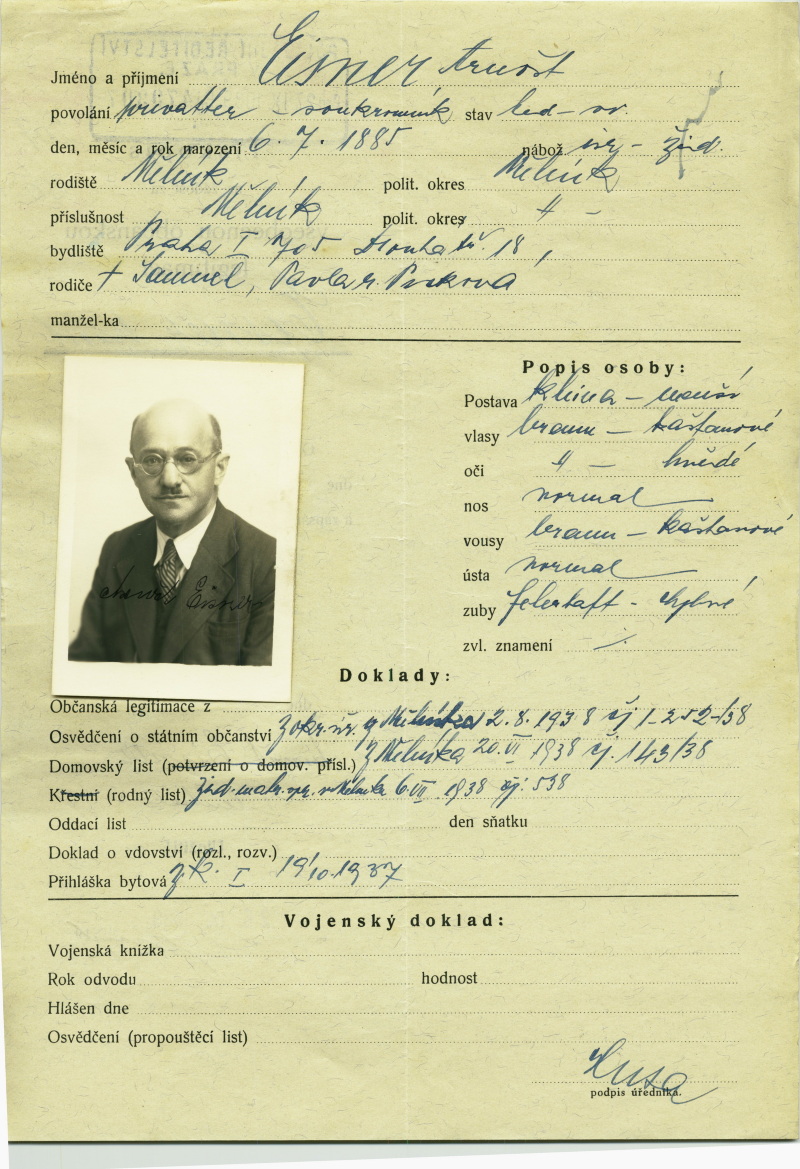 Jméno a přijmení Eisner Arnošt
povolání privatier – soukromník stav led – sv.
den, měsíc a rok narození 6. 7. 1885 nábož isr – žid.
rodiště Mělník, polit. okres Mělník
příslušnost Mělník polit. okres " –
bydliště Praha I 705 Dlouhá tř. 18,
rodiče + Samuel, Pavla r.
manžel-ka
Popis osoby:
Postava klein – menší
vlasy braun – kaštanové
oči " – hnědé
nos normal
vousy braun – kaštanové
ústa normal
zuby fehlerhaft – chybné
zvl. znamení ·/.
Arnošt Eisner
Doklady:
Občanská legitimace z
Osvědčení o státním občanství z okr. úř. z Mělníka 2. 8. 1938 čj 1-252/38
Domovský list (potvrzení o domov. přísl.) z Mělníka 20. VI 1938 čj. 143/38
Křestní (rodný list) žid. matr. v Mělníku 6. VII 1938 čj. 538
Oddací list den sňatku
Doklad o vdovství (rozl., rozv.)
Přihláška bytová I 19/10. 1937
Vojenský doklad:
Vojenská knížka
Rok odvodu hodnost
Hlášen dne
Osvědčení (propouštěcí list)
podpis úředníka.